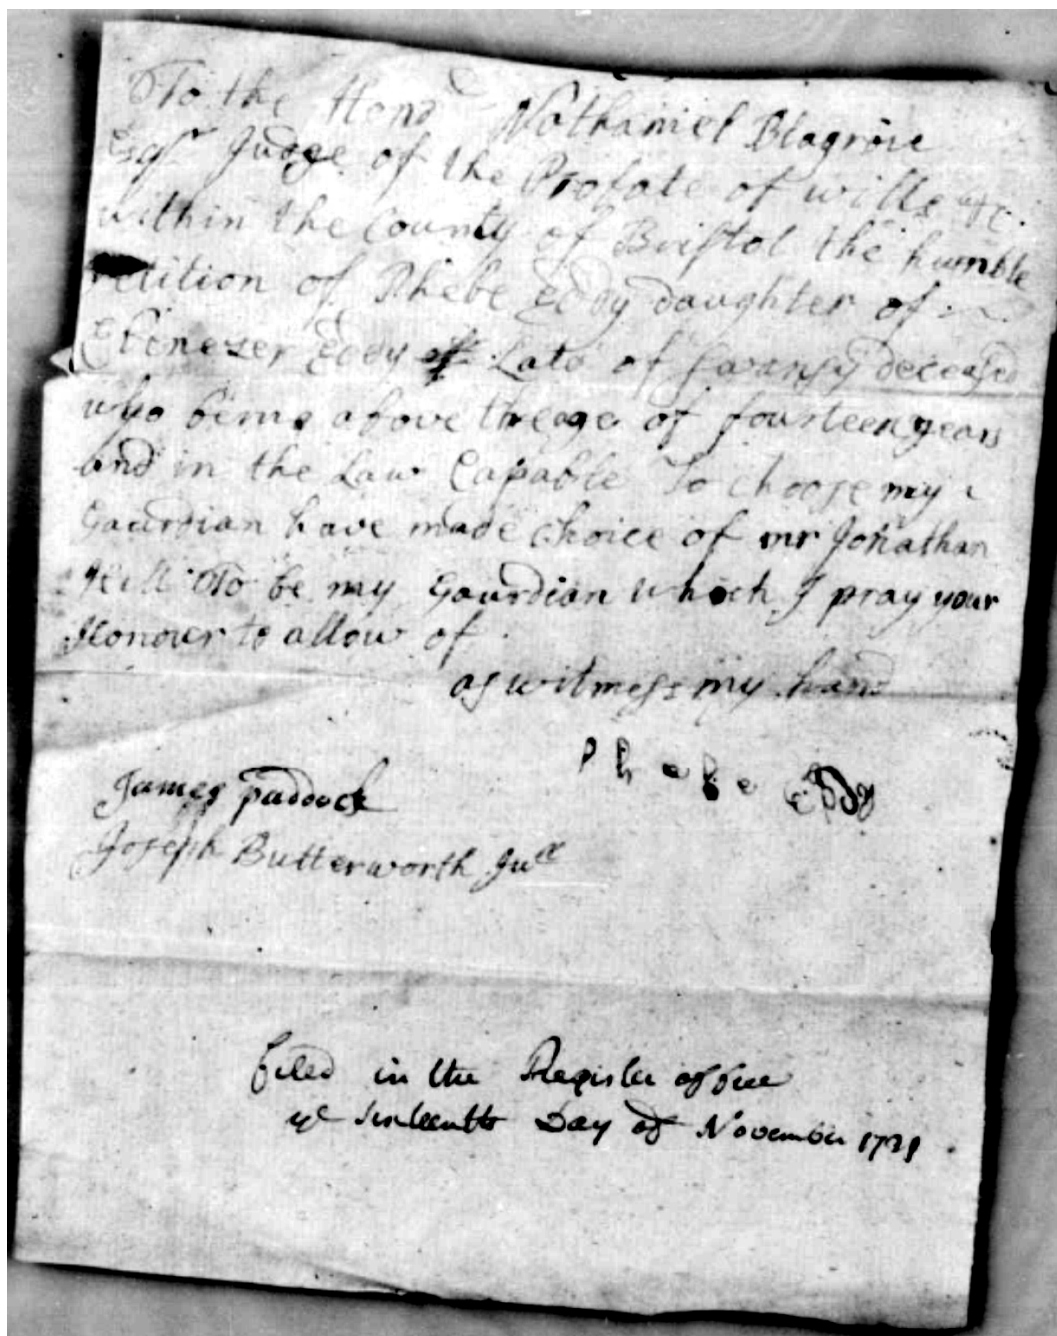 To the Hond Nathaniel Blagrove
Esqr Judge of the Probate of wills &c.
within the County of Bristol the humble
petition of Phebe Eddy daughter of
Ebenezer Eddy Late of Swansy deceased
who being above the age of fourteen years
and in the Law Capable To choose my
Gaurdian have made choice of mr Jonathan
To be my Gaurdian which I pray your
Honour to allow of
as witness my hand
Phebe Eddy
James Paddock
Joseph Butterworth
filed in the Register office
ye sixteenth Day of November